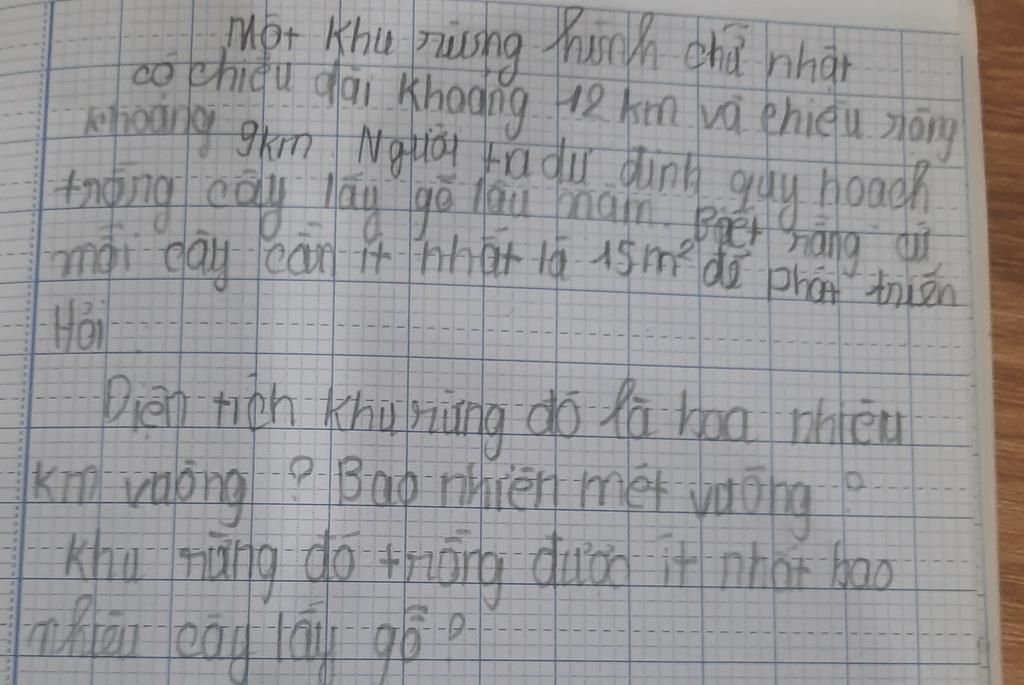 Một khu rừng hình chữ nhật
có chiều dài khoảng 12 km và chiều rộng
khoảng 9km Người ta dự định quy hoạch
trồng cây lấy gỗ lâu năm Biết rằng cứ
mỗi cây cần ít nhất là 15m² để phát triển
Hỏi
Diện tích khu rừng đó là bao nhiêu
km vuông ? Bao nhiên mét vuông ?
khu rừng đó trồng được ít nhất bao
nhiêu cây lấy gỗ ?